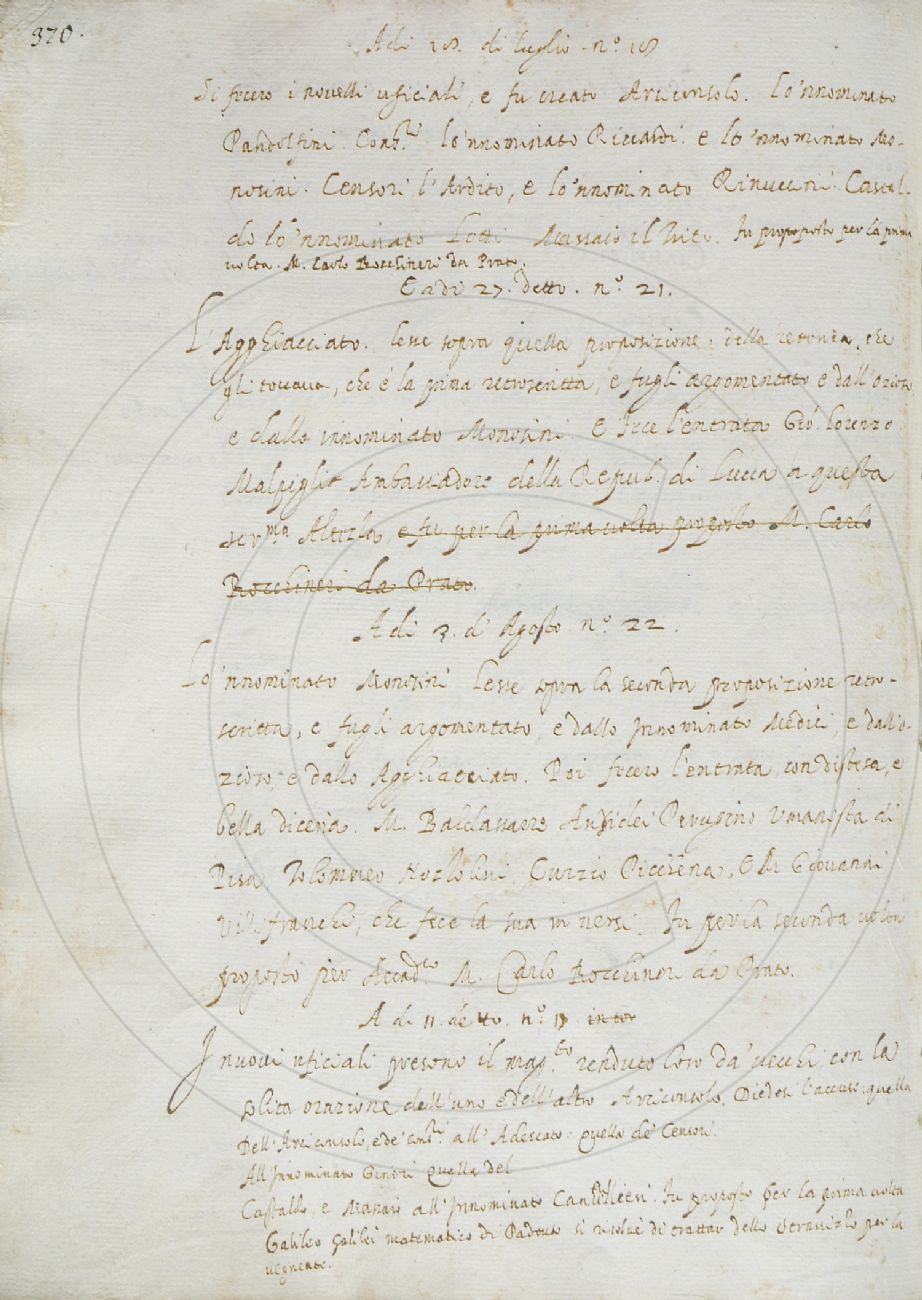 370.
A di 18. di luglio. n.º 18
Si fecero i novelli uficiali, e fu creato Arciconsolo. lo 'nnominato
Pandolfini. Cons.ri lo 'nnominato Riccardi. e lo 'nnominato Mo-
nosini. Censori l'Ardito, e lo 'nnominato Rinuccini. Castal-
do lo 'nnominato Lotti Massaio il Fu proposto per la prima
volta. M. Carlo Bocchineri da Prato.
E a dì 27. detto. n.º 21.
L'Agghiacciato. lesse sopra quella proposizione. della retorica, che
gli toccava, che è la prima retroscritta, e fugli argomentato e dall'Ozioso
e dallo innominato Monosini. E fece l'entrata Gio. Lorenzo
Malpigli Ambasciadore della Repub. di Lucca a questa
ser.ma Altezza, e fu per la prima volta proposto M. Carlo
Bocchineri da Prato.
A di 3. d'Agosto n.º 22.
Lo 'nnominato Monosini lesse sopra la seconda proposizione retro-
scritta, e fugli argomentato, e dallo Innominato Medici, e dall'O-
zioso, e dallo Agghiacciato. Poi fecero l'entrata con distesa, e
bella diceria. M. Baldassarre Ansidei Perugino umanista di
Pisa, Tolommeo Nozzolini, Curzio Picchena, E M. Giovanni
Villifranchi, che fece la sua in versi. Fu per la seconda volta
proposto per Accad.co M. Carlo Bocchineri da Prato.
A di 11. detto. n.º
I nuovi uficiali presono il mag.to renduto loro da' vecchi, con la
solita orazione dell'uno e dell'altro Arciconsolo. Diedesi l'accusa: quella
Dell'Arciconsolo, e de' cons.ri all'Adescato: quella de' Censori.
All'Innominato Ginori quella del
Castaldo, e Massaio all'Innominato Canigiani. Fu proposto per la prima volta
Galileo Galilei matematico di Padova si risolvé di trattar dello stravizzo per la
vegnente.